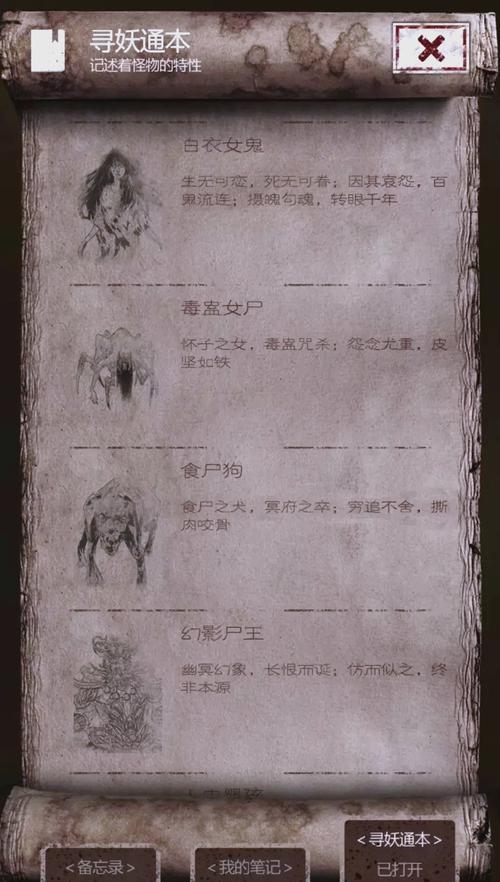 寻妖通本
记述着怪物的特性
白衣女鬼
生无可恋，死无可眷；因其哀怨，百
鬼流连；摄魄勾魂，转眼千年
毒蛊女尸
怀子之女，毒蛊咒杀；怨念尤重，皮
坚如铁
食尸狗
食尸之犬，冥府之卒；穷追不舍，撕
肉咬骨
幻影尸王
幽冥幻象，长恨而诞；仿而似之，终
非本源
<寻妖通本>
<备忘录>
<我的笔记>
已打开